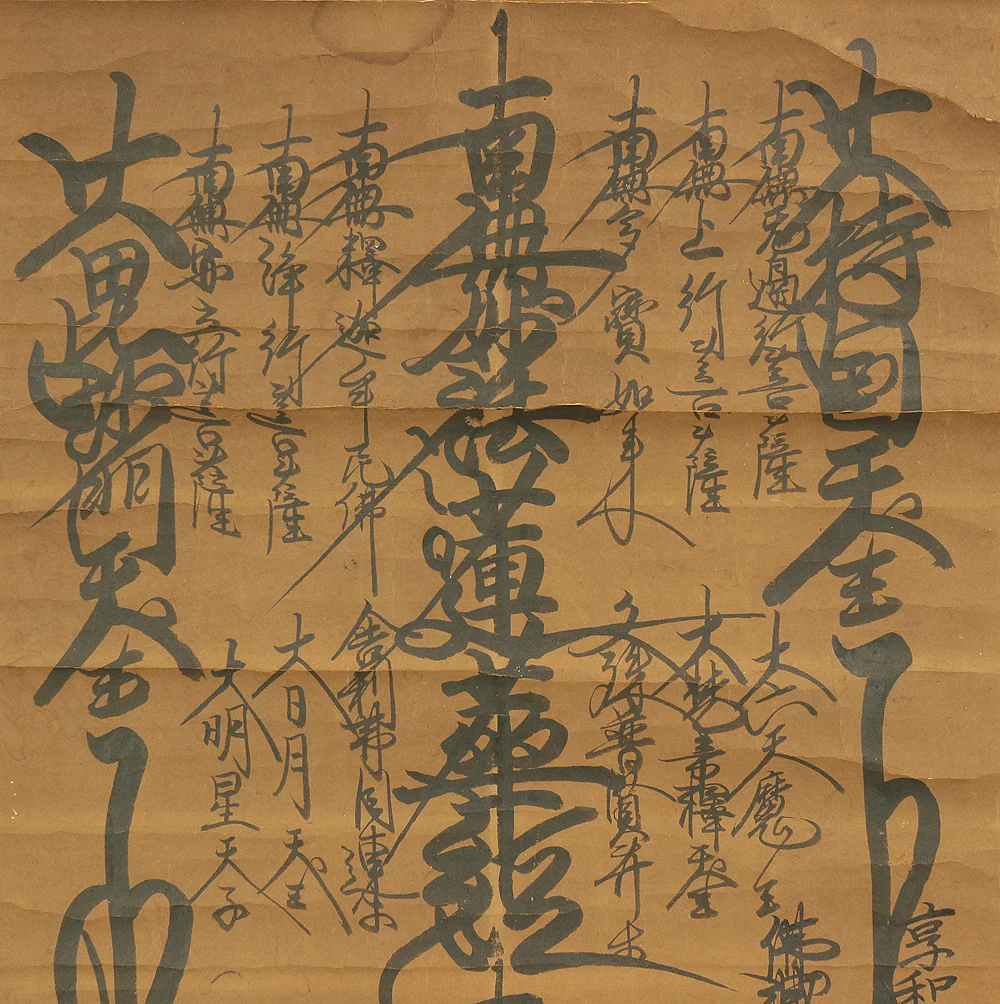 大持国天王
南無無邊行菩薩
南無上行菩薩
南無多寳如来
南無妙法蓮華経
南無釋迦牟尼佛
南無浄行菩薩
南無安立行菩薩
大毘沙門天王
享和
大六天魔王
大梵帝釋天王
文殊普賢等
舎利弗目連等
大日月天王
大明星天子
佛